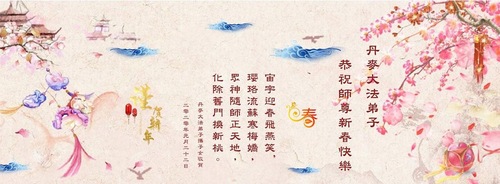 丹麥大法弟子
恭祝師尊新春快樂
春
宙宇迎春飛燕笑，
瓔珞流蘇寒梅嬌，
眾神隨師正天地，
化除舊門換新桃。
丹麥大法弟子攜子女敬賀
二零二零年元月二十二日
賀新年